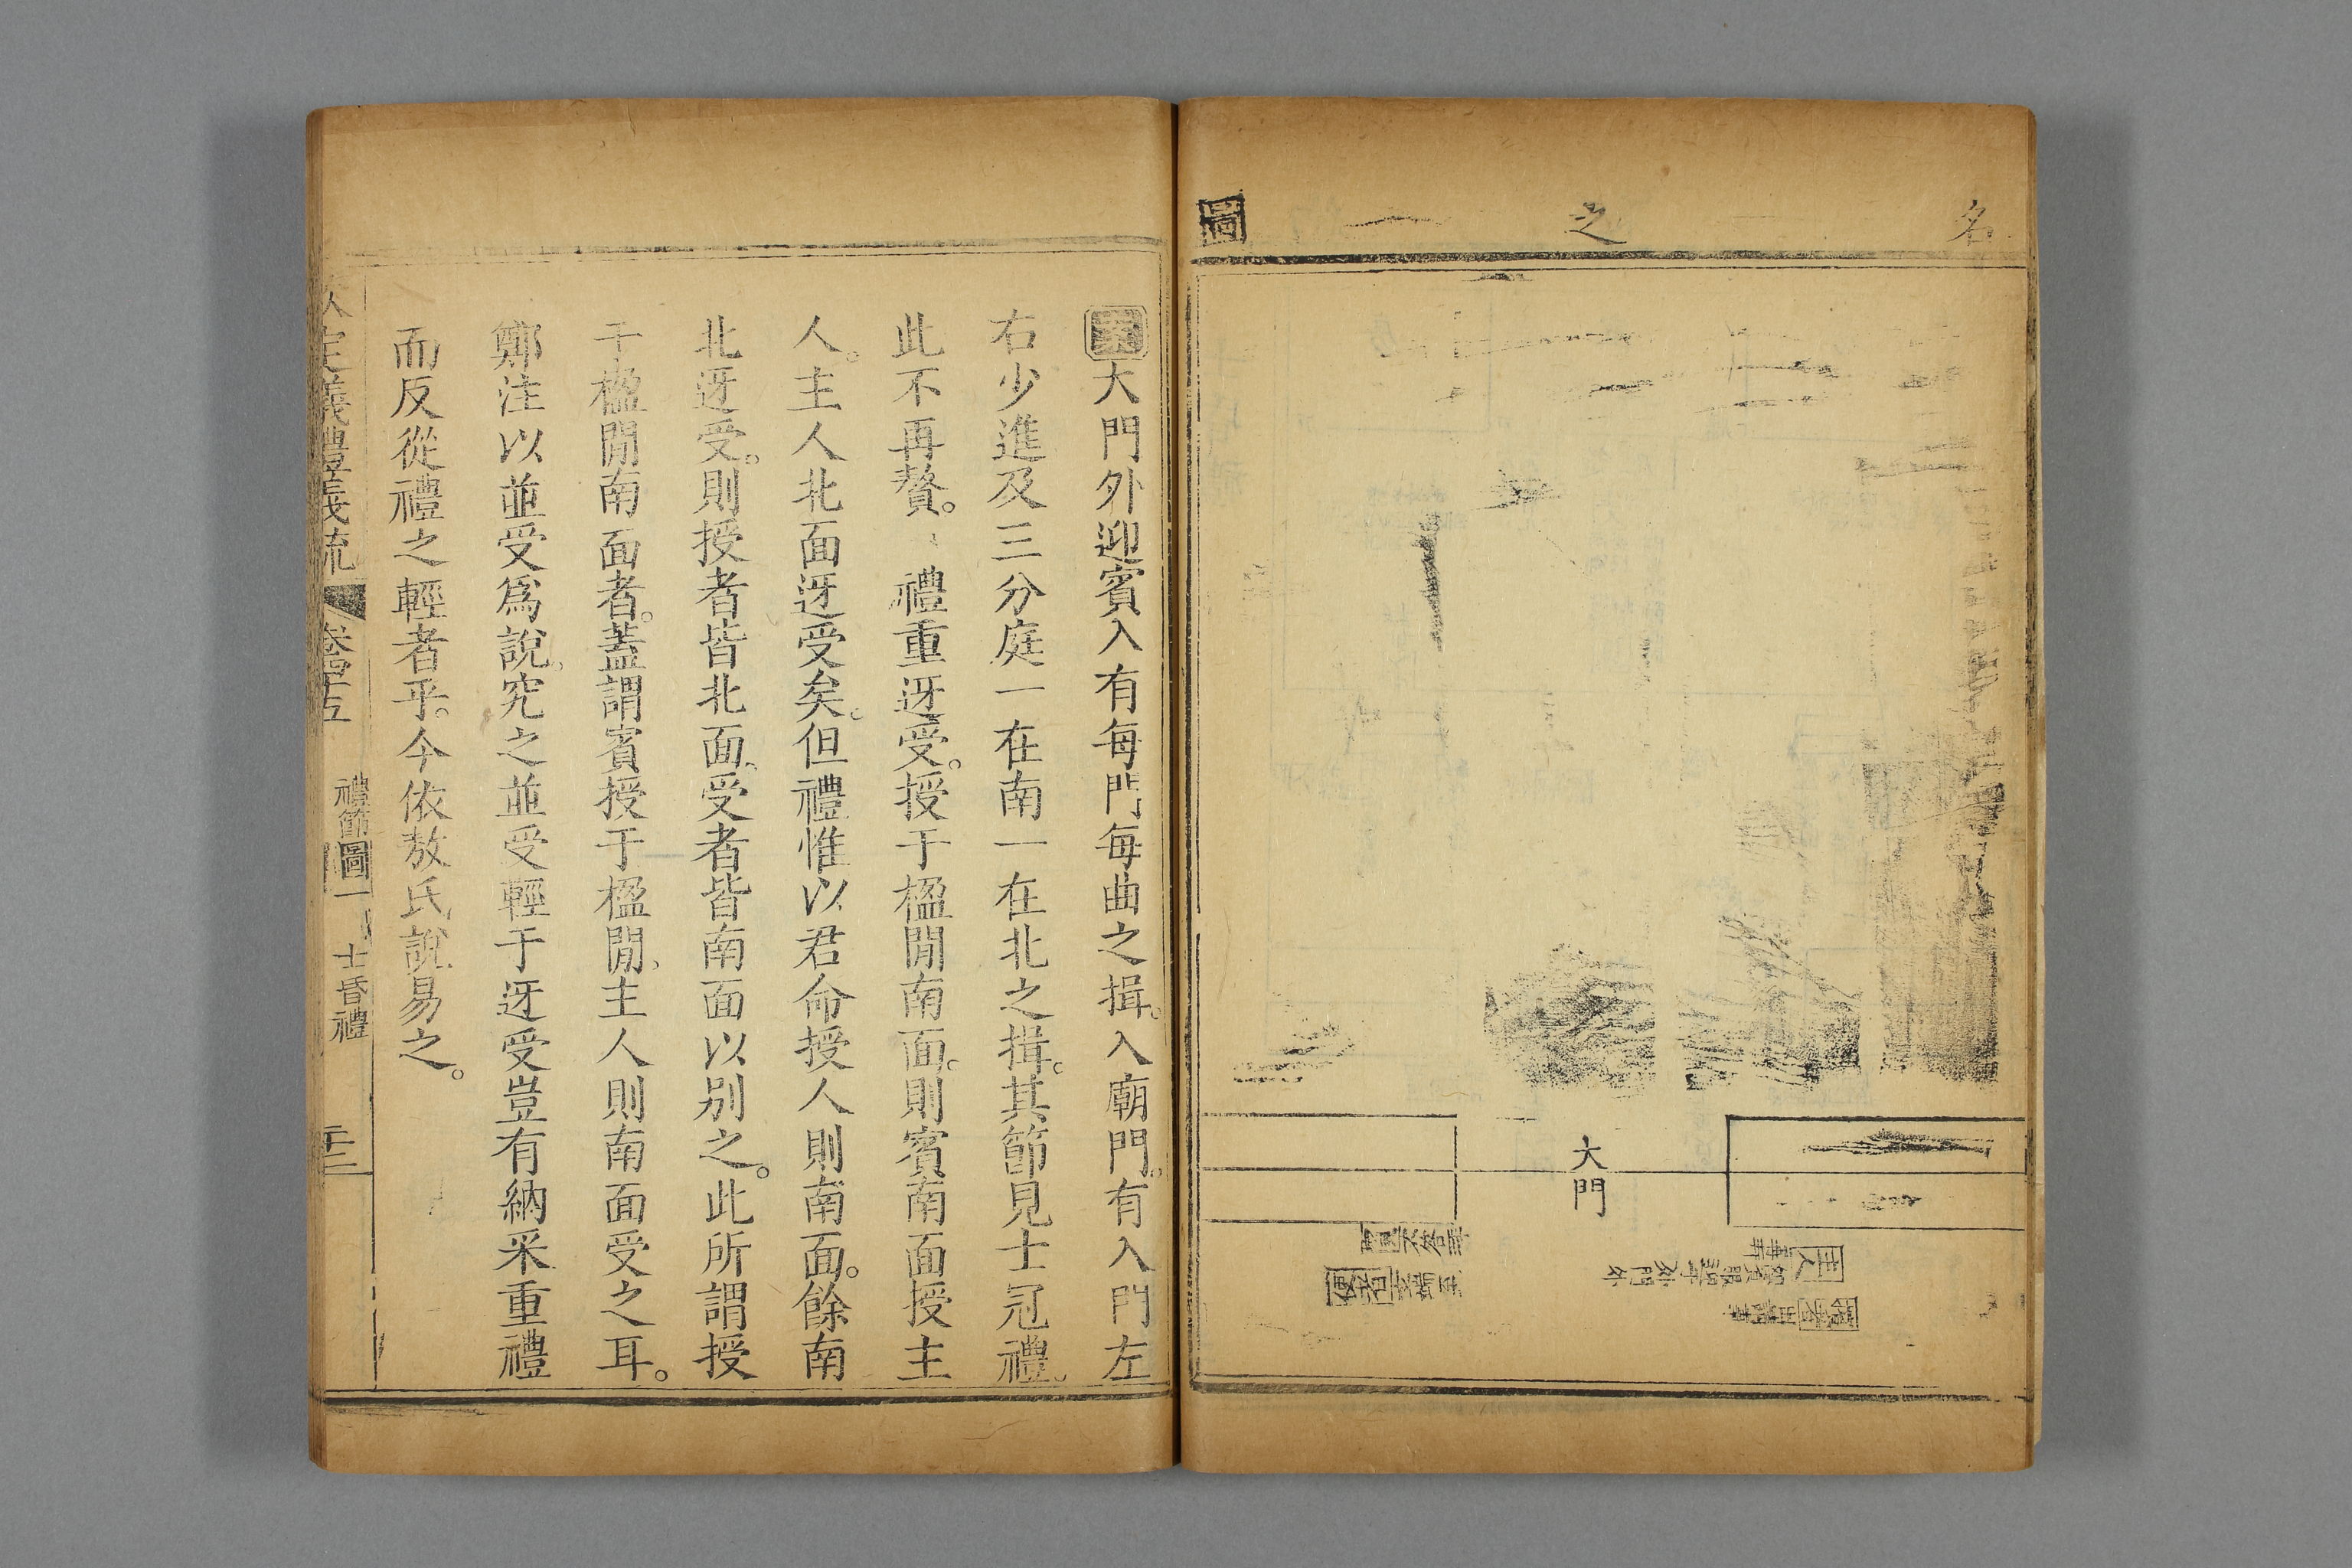 名
之
一
圖
大門
大門外迎賓入有每門每曲之揖。入廟門。有入門左
右少進及三分庭一在南一在北之揖。其節見士冠禮。
此不再贅。禮重迓受。授于楹閒南面。則賓南面授主
人。主人北面迓受矣。但禮惟以君命授人則南面。餘南
北迓受。則授者皆北面、受者皆南面以別之。此所謂授
于楹閒南面者。蓋謂賓授于楹閒、主人則南面受之耳。
鄭注以並受爲說、究之並受輕于迓受豈有納采重禮
而反從禮之輕者乎。今依敖氏說易之。
定義禮義疏
卷四十五
禮節圖一
士昏禮